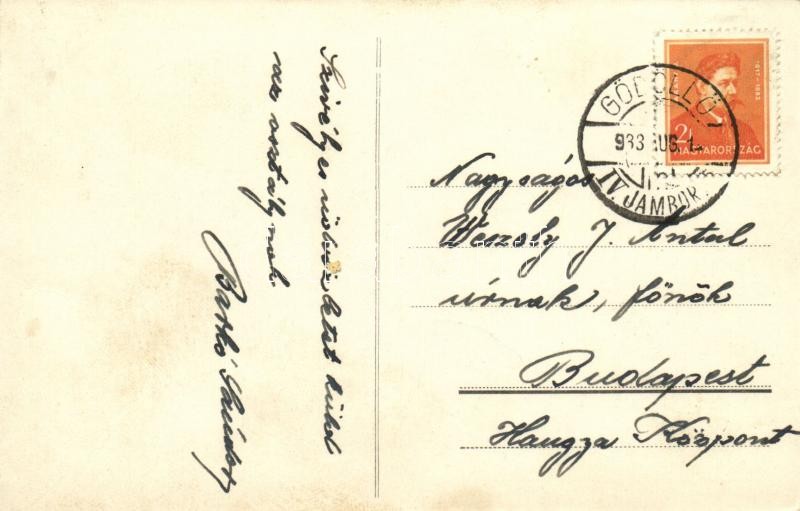 Szivélyes üdvözletet küld
az osztálynak
Barkó Sándor
GÖDÖLLŐ
933 AUG. 1
IV JAMBOR.
1817-1882
2
MAGYARORSZÁG
Nagyságos
J. Antal
úrnak, főnök
Budapest
Hangya Központ